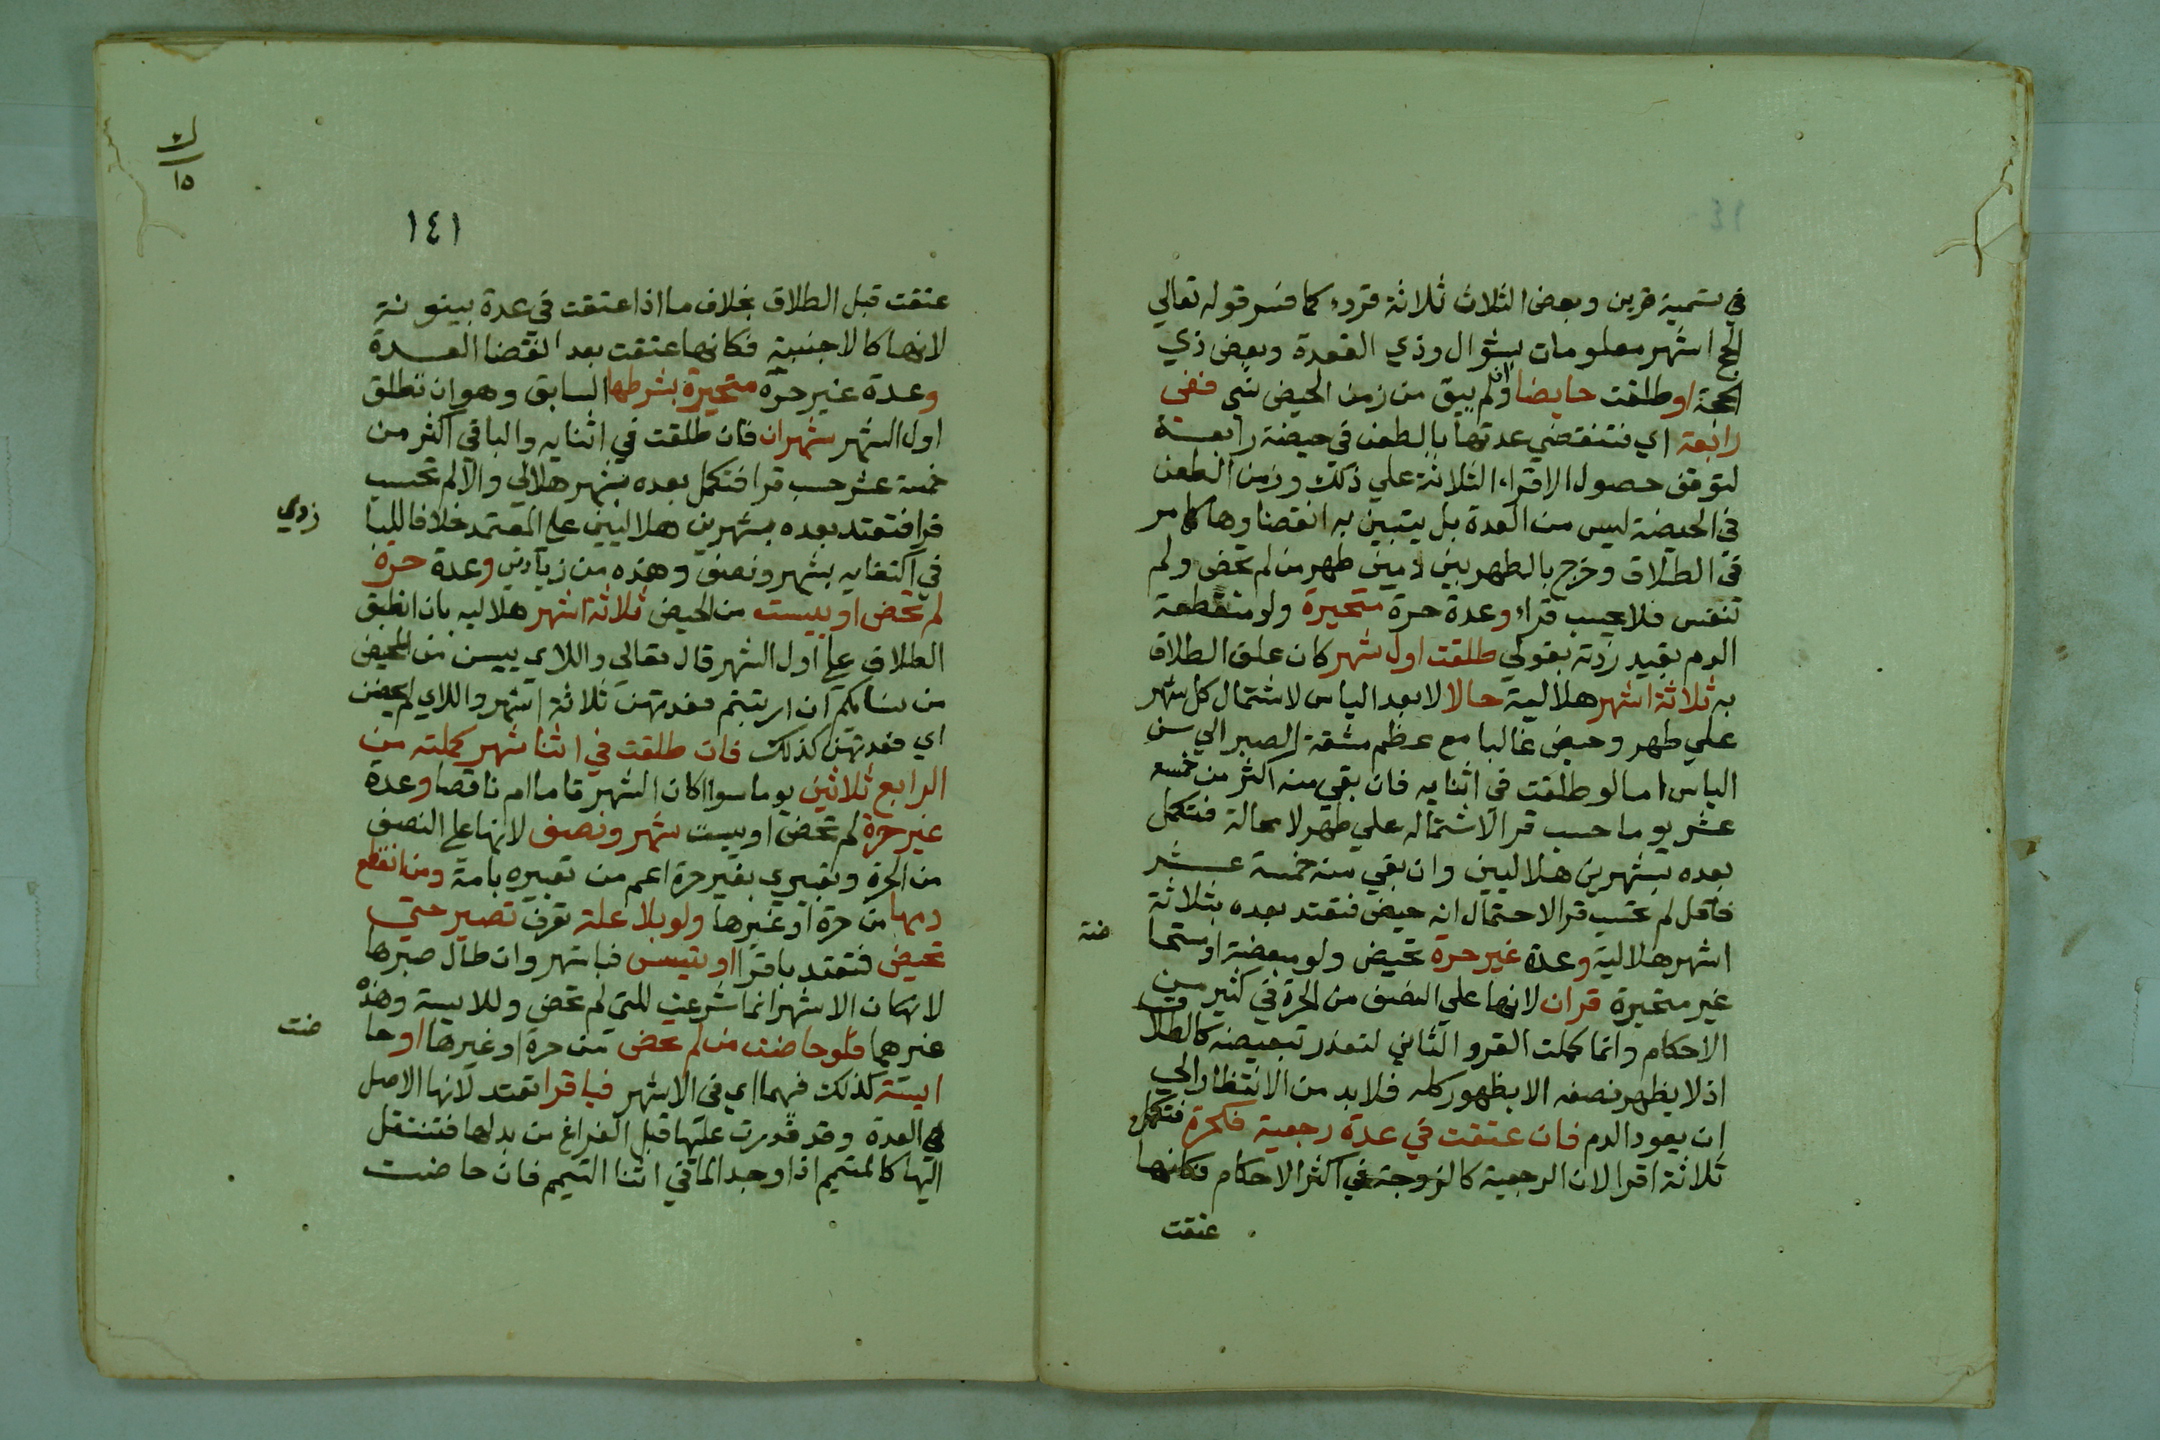 في تسمية قرين وبعض الثلاث ثلاثة قروء كما فسر قوله تعالي
الحج اشهر معلومات بشوال وذي القعدة وبعض ذي
الحجة او طلقت حايضا وان لم يبق من زمن الحيض شي ففي
رابعة اي فتنقضي عدتها بالطعن في حيضة رابعة
لتوقف حصول الاقراء الثلاثة علي ذلك وزمن الطعن
في الحيضة ليس من العدة بل يتبين به انقضاوها كما مر
في الطلاق وخرج بالطهر بين دمين طهر من لم تحض ولم
تنفس فلا يحسب قراء وعدة حرة متحيرة ولو منقطعة
الدم بقيد زدته بقولي طلقت اول شهر كان علق الطلاق
به ثلاثة اشهر هلالية حالا لا بعد الياس لاشتمال كل شهر
علي طهر وحيض غالبا مع عظم مشقة الصبر الي سن
الياس اما لو طلقت في اثنايه فان بقي منه اكثر من خمسة
عشر يوما حسب قرا لاشتماله علي طهر لا محالة فتكمل
بعده بشهرين هلاليين وان بقي منه خمسة عشر
فاقل لم تحسب قرا لاحتمال انه حيض فتعتد بعده بثلاثة
اشهر هلالية وعدة غير حرة تحيض ولو مبعضة او مستحا
ضة
غير متحيرة قران لانها علي النصف من الحرة في كثير من
الاحكام وانما كملت القرو الثاني لتعذر تبعيضه كالطلاق
اذ لا يظهر نصفه الا بظهور كله فلا بد من الانتظار الي
ان يعود الدم فان عتقت في عدة رجعية فكحرة فتكمل
ثلاثة اقرا لان الرجعية كالزوجة في اكثر الاحكام فكانها
عتقت
١٤١
١٥
عتقت قبل الطلاق بخلاف ما اذا عتقت في عدة بينونة
لانها كالاجنبية فكانها عتقت بعد انقضا العدة
وعدة غير حرة متحيرة بشرطها السابق وهو ان تطلق
اول الشهر شهران فان طلقت في اثنايه والباقي اكثر من
خمسة عشر حسب قرا فتكمل بعده بشهر هلالي والا لم تحسب
قرا فتعتد بعده بشهرين هلاليين علي المعتمد خلافا للبا
رزي
في اكتفايه بشهر ونصف وهذه من زيادتي وعدة حرة
لم تحض او ييست من الحيض ثلاثة اشهر هلاليه بان انطبق
الطلاق علي اول الشهر قال تعالي واللاي ييسن من المحيض
من نسايكم ان ارتبتم فعدتهن ثلاثة اشهر واللاي لم يحضن
اي فعدتهن كذلك فان طلقت في اثنا شهر كملته من
الرابع ثلاثين يوما سوا كان الشهر تاما ام ناقصا وعدة
غير حرة لم تحض او ييست شهر ونصف لانها علي النصف
من الحرة وتعبيري بغير حرة اعم من تعبيره بامة ومن انقطع
دمها من حرة او غيرها ولو بلا علة تعرف تصبر حتي
تحيض فتعتد باقرا او تييس فباشهر وان طال صبرها
لانكان الاشهر انما شرعت للتي لم تحض وللايسة وهذه
غيرهما فلو حاضت من لم تحض من حرة او غيرها او حا
ضت
ايسة كذلك فيهما اي في الاشهر فباقرا تعتد لانها الاصل
في العدة وقد قدرت عليها قبل الفراغ من بدلها فتنتقل
اليها كالمتيمم اذا وجد الما في اثنا التيمم فان حاضت